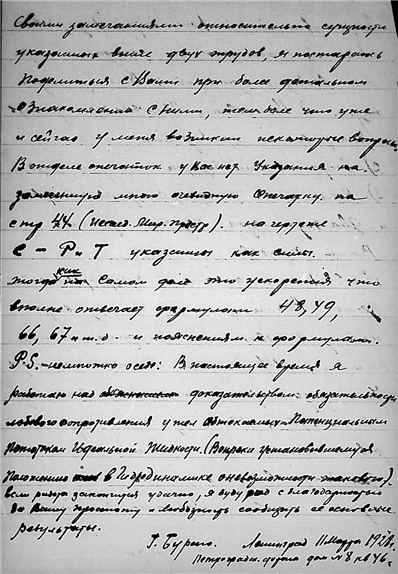 Своими замечаниями относительно сущности
указанных выше двух трудов, я постараюсь
поделиться с Вами при более детальном
ознакомлении с ними, тем более что уже
и сейчас у меня возникли некоторые вопросы.
В отделе опечаток у Вас нет указания на
замеченную мною очевидную опечатку на
стр 44 (Исслед. Мир. Простр). на чертеже
С – Р и Т указаны как силы
тогда как на самом деле это ускорения что
вполне отвечает формулам 48, 49,
66, 67 и т. д. и пояснениям к формулам.
P.S. – немножко о себе: В настоящее время я
работаю над доказательством обязательности
лобового сопротивления у тел обтекаемых Потенциальным
потоком Идеальной Жидкости. (Вопреки установившемуся
положению в Гидродинамике о невозможности такового).
если работа закончится удачно, я буду рад с благодарностью
за Вашу простоту и сообщить ее основные
результаты.
Г. Ленинград 11 Марта 1928 г.
Петроградск. дом № 8 кв 46